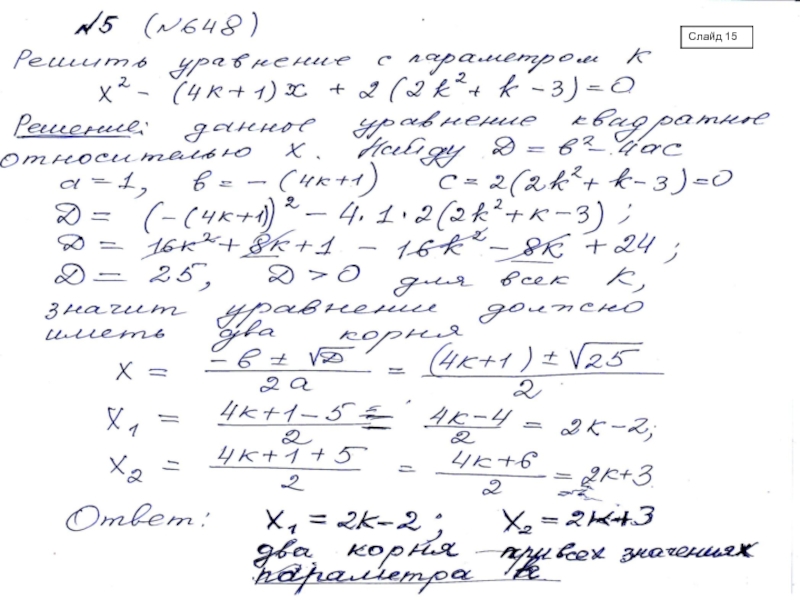 №5 (№648)
Слайд 15
Решить уравнение с параметром к
x² - (4к+1)x + 2(2k²+ k -3)=0
Решение: данное уравнение квадратное
относительно x. Найду D = в²- 4ac
a=1, в = -(4к+1) c = 2(2k²+ k-3)=0
D = (-(4к+1))² - 4·1·2(2k²+к-3);
D = 16к²+8к+1 - 16k² - 8к +24;
D = 25, D>0 для всех к,
значит уравнение должно
иметь два корня
x = (-в ± √D)/(2a) = ((4к+1) ± √25)/2
x₁ = (4к+1-5)/2 = (4к-4)/2 = 2к-2;
x₂ = (4к+1+5)/2 = (4к+6)/2 = 2к+3
Ответ: x₁ = 2k-2; x₂ = 2к+3
два корня при всех значениях
параметра к